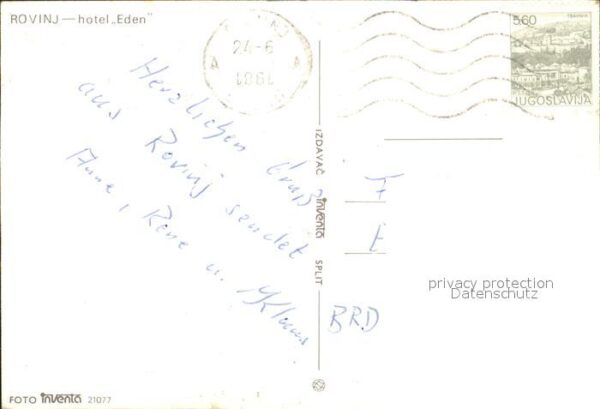 ROVINJ — hotel „Eden"
ROVINJ
24-6
A A
5,60
TRAVNIK
JUGOSLAVIJA
Herzlichen Gruß
aus Rovinj sendet
Anne, Rene u. Klaus
IZDAVAČ inventa SPLIT
BRD
privacy protection
Datenschutz
FOTO inventa 21077